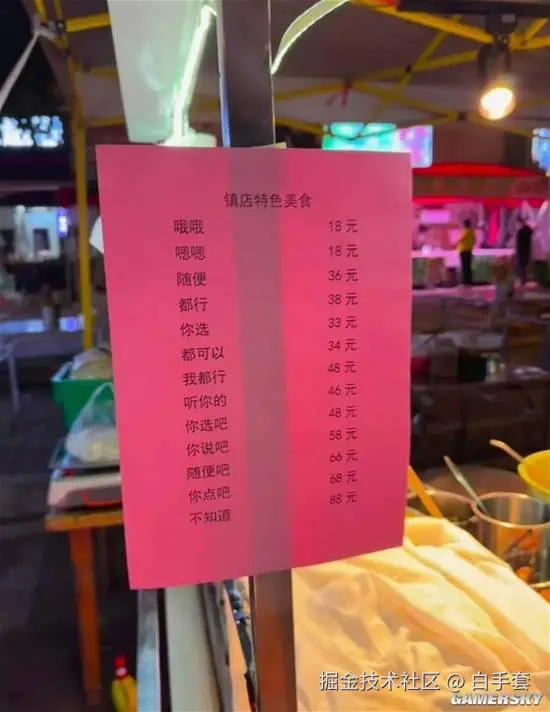 镇店特色美食
哦哦 18元
嗯嗯 18元
随便 36元
都行 38元
你选 33元
都可以 34元
我都行 48元
听你的 46元
你选吧 48元
你说吧 58元
随便吧 66元
你点吧 68元
不知道 88元
掘金技术社区 @ 白手套
GAMERSKY